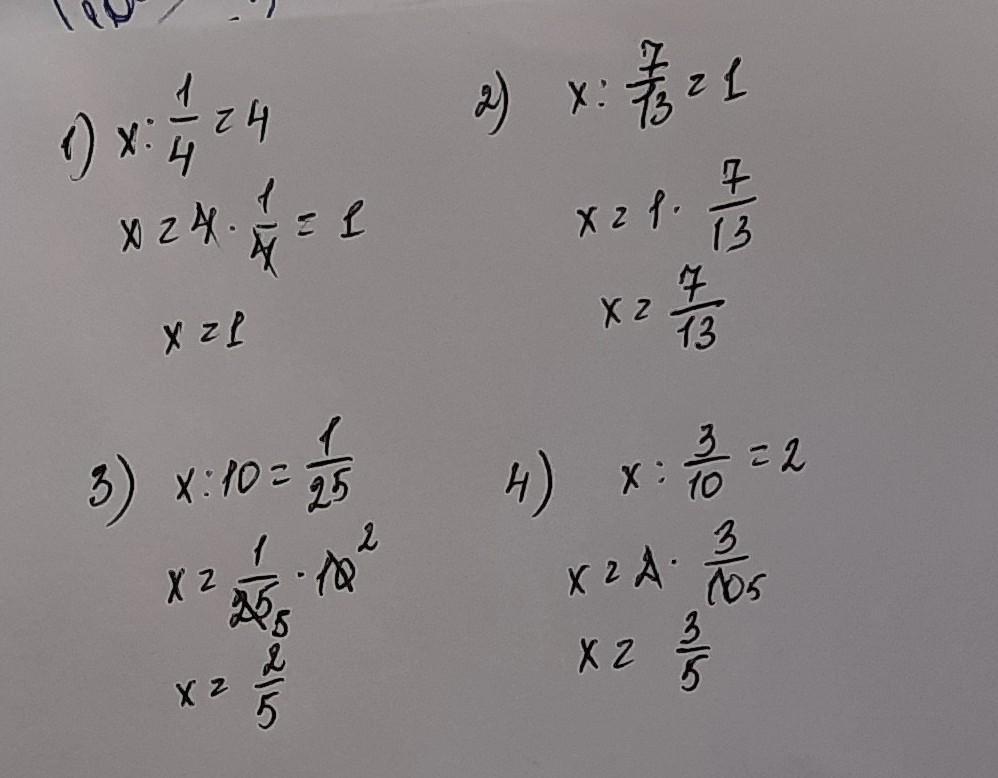 1) x : 1/4 = 4
x = 4 · 1/4 = 1
x = 1
2) x : 7/13 = 1
x = 1 · 7/13
x = 7/13
3) x : 10 = 1/25
x = 1/25 5 · 10 2
x = 2/5
4) x : 3/10 = 2
x = 2 · 3/10 5
x = 3/5